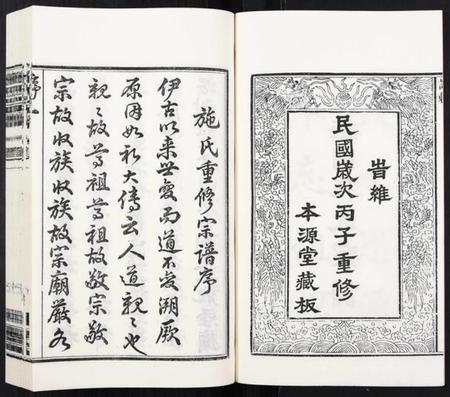 旹維
民國歲次丙子重修
本源堂藏板
施氏重修宗譜序
伊古以來世變而道不變溯厥
原因如礼大傳云人道親〻也
親〻故尊祖尊祖故敬宗敬
宗故收族收族故宗廟嚴
序一